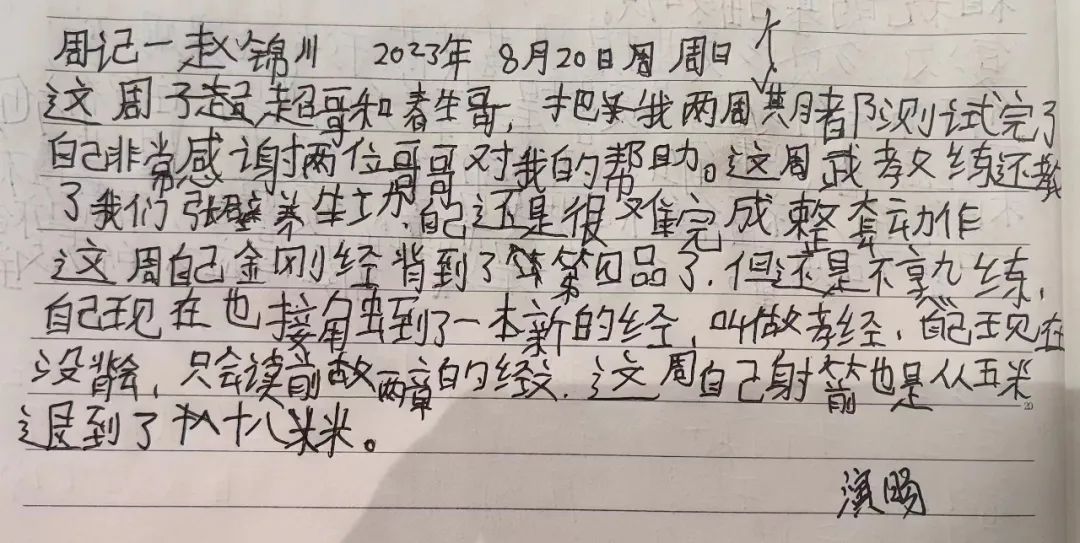 周记一赵锦川 2023年 8月20日周 周日
这周了超超哥和春生哥,把我两周其月者阝测试完了
自己非常感谢两位哥哥对我的帮助。这周武教练还教
了我们张壁养生功,自己还是很难完成整套动作
这周自己金刚经背到了第四品了.但还是不熟练,
自己现在也接触到了一本新的经,叫做孝经,自己现在
没背会,只会读前两章的经文.这周自己射箭也是从五米
退到了十八米。
演畅